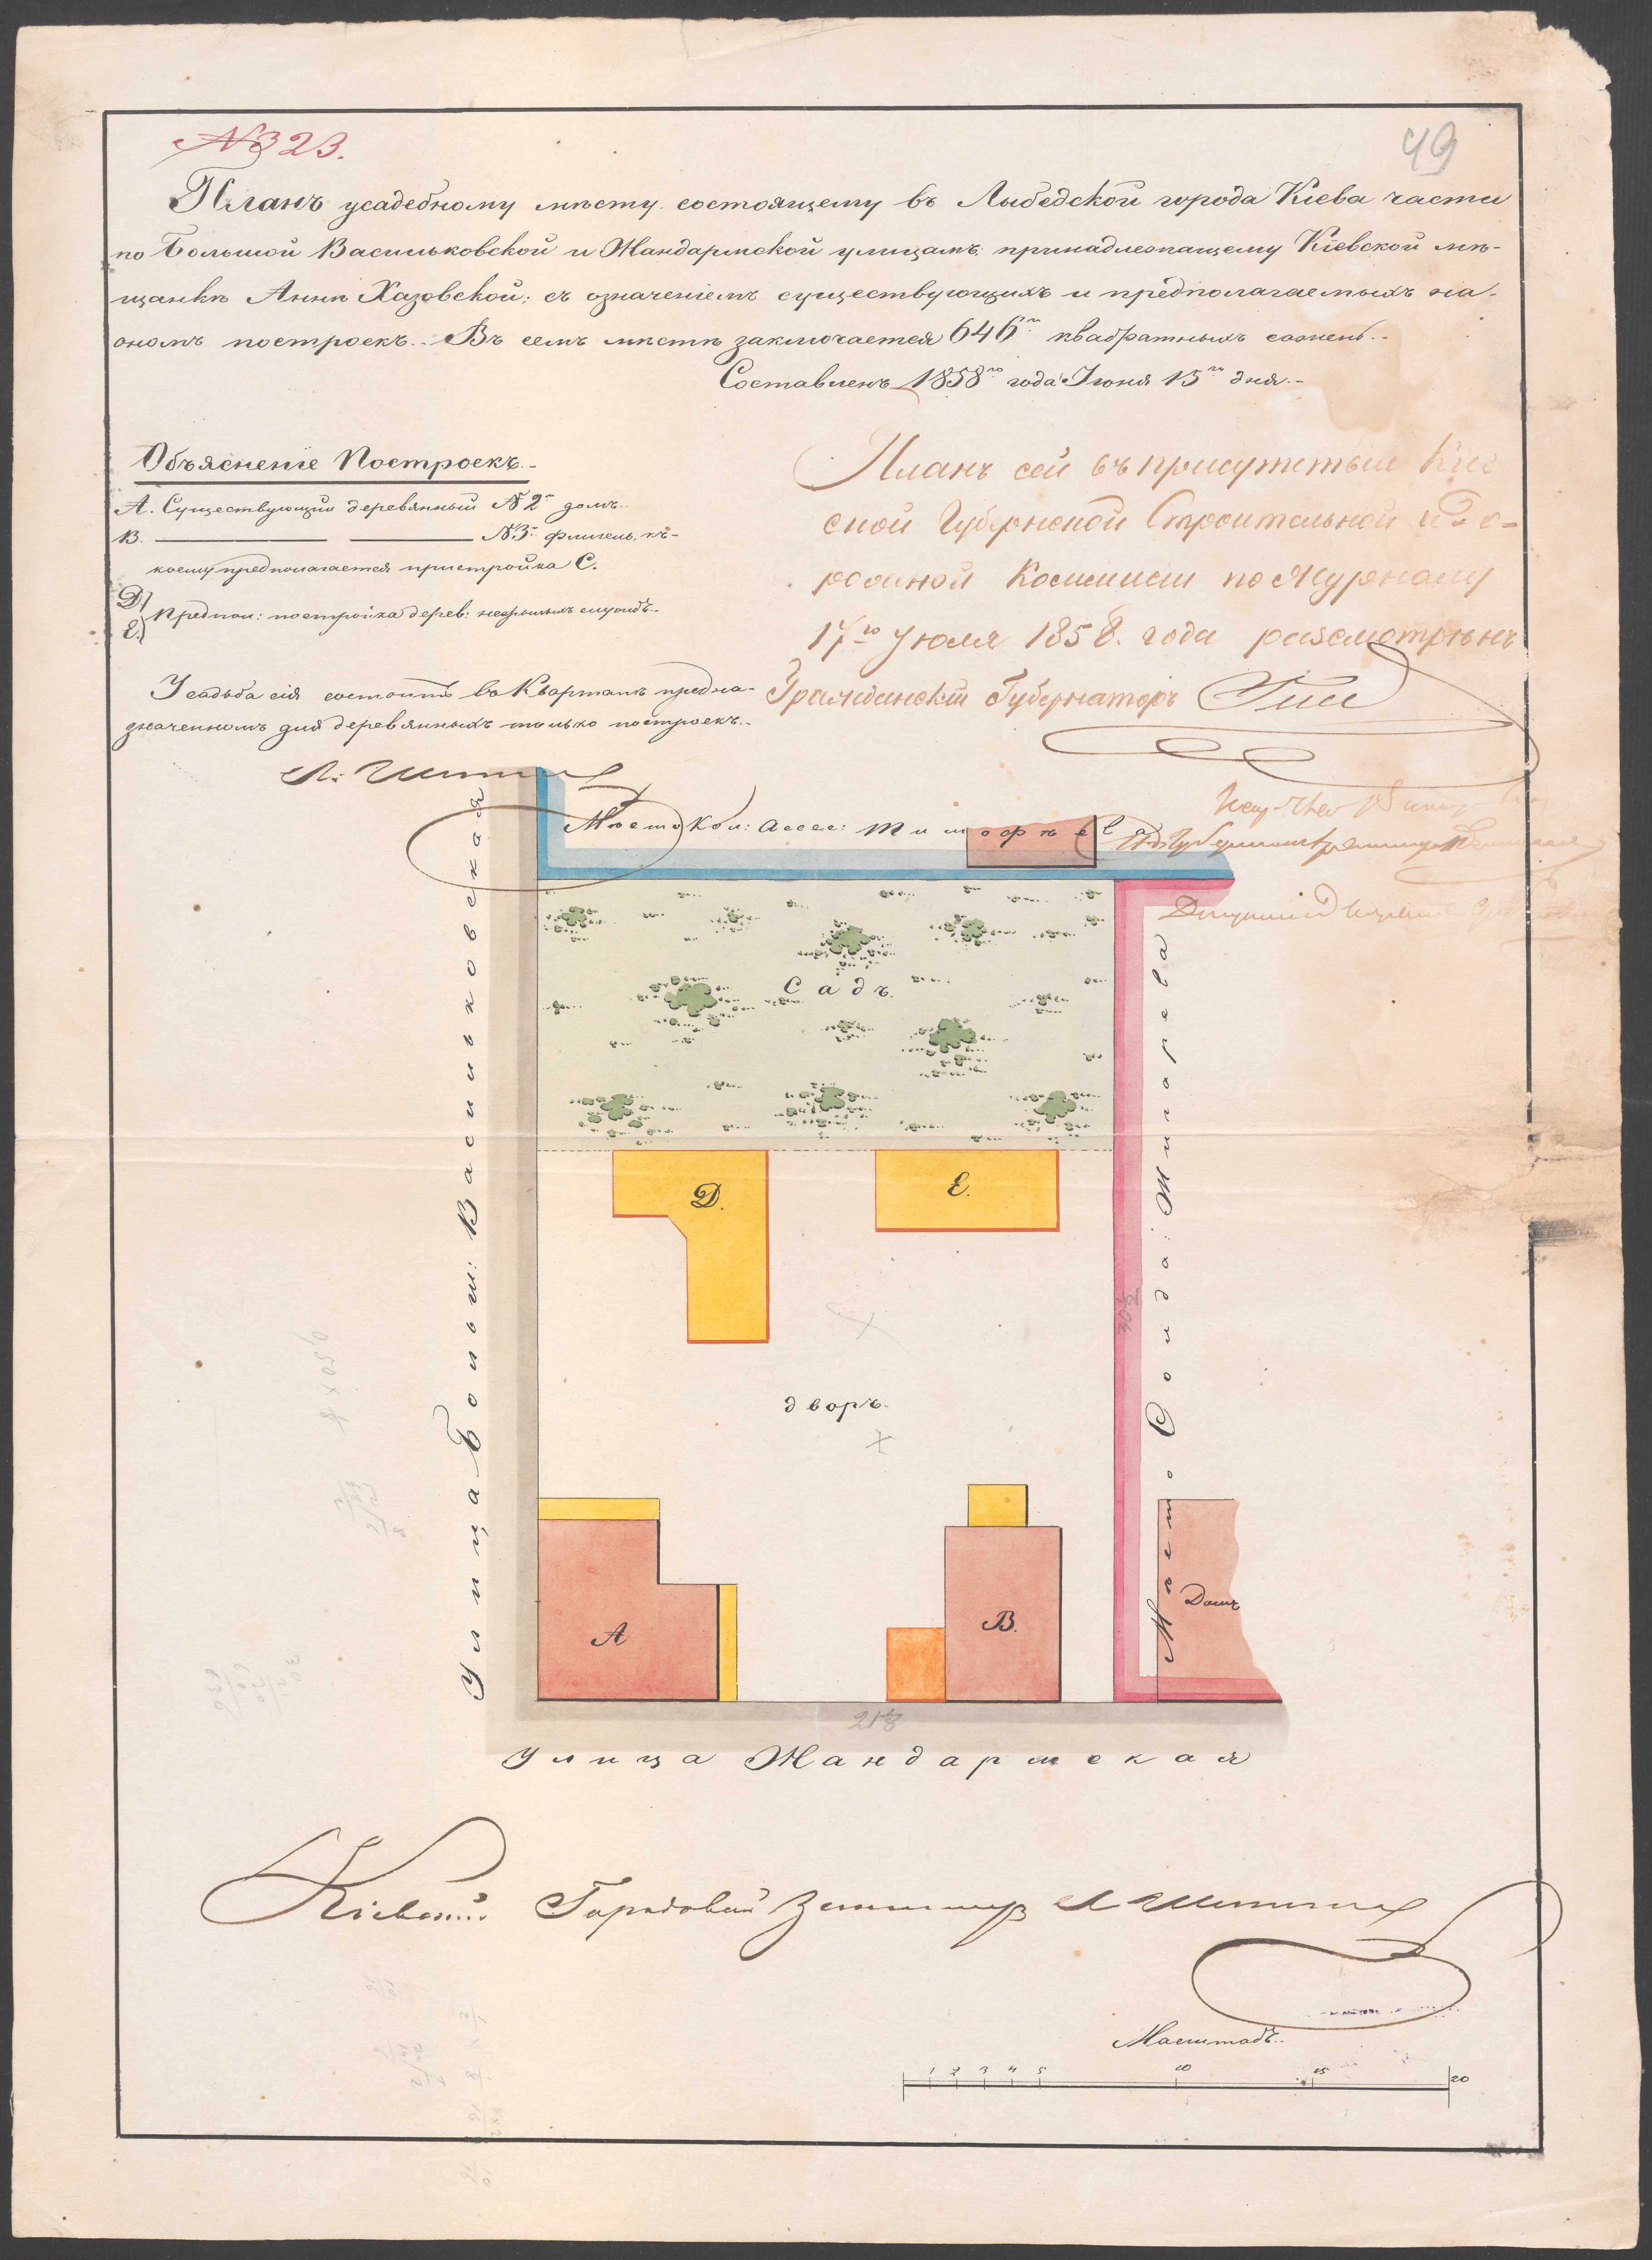 № 323.
49
Планъ усадебному мѣсту состоящему въ Лыбедской города Кіева части
по Большой Васильковской и Жандармской улицамъ, принадлежащему Кіевской мѣ-
щанкѣ Аннѣ Хазовской; съ означеніемъ существующихъ и предполагаемыхъ на-
ономъ построекъ. Въ семъ мѣстѣ заключается 646 квадратныхъ сажень.-
Составленъ 1858го года Іюня 15го дня.-
Объясненіе Построекъ.-
А. Существующій деревянный № 2й домъ.
В. №3й флигель, къ-
коему предполагается пристройка С.
D)
E.)
Предпол: постройка дерев: нежилыхъ службъ.-
Усадьба сія состоитъ въ Кварталѣ предна-
значенномъ для деревянныхъ только построекъ.-
Планъ сей въ присутствіи Кіев
ской Губернской Строительной и До-
рожной Коммисіи по Журналу
17го Іюля 1858. года разсмотрѣнъ
Гражданскій Губернаторъ
Мѣсто Кол: Ассес: Тимофѣева
Садъ.
D.
E.
дворъ.
А
В.
Домъ
Улица Больш: Васильковская
Мѣсто Солда: Жигарева
30½
21⅛
Улица Жандармская
Кіевскій Городовой Землемѣръ
Масштабъ.
1 2 3 4 5 10 15 20